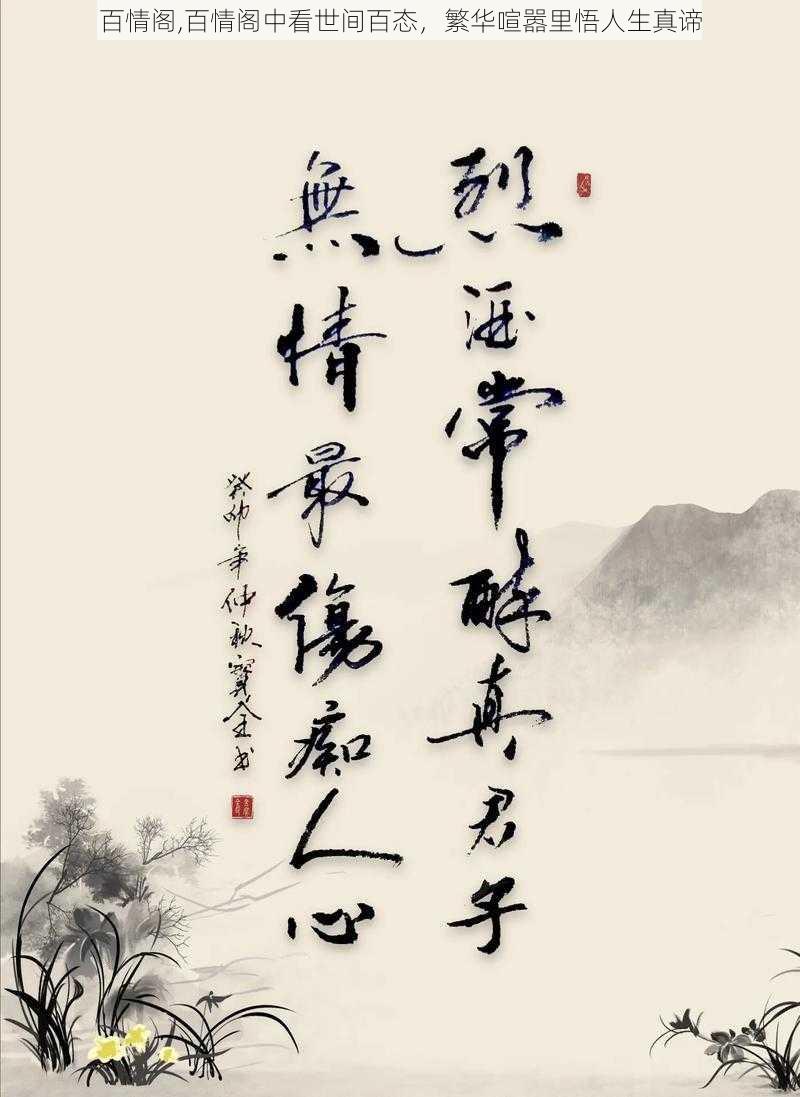 百情阁,百情阁中看世间百态，繁华喧嚣里悟人生真谛
烈酒常醉真君子
無情最傷痴人心
癸卯年仲秋寶全书